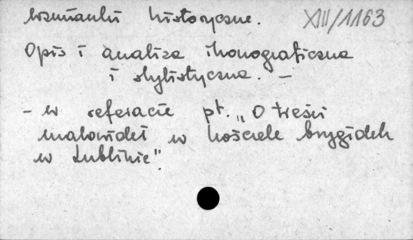 wzmianki historyczne. XIII/1163
Opis i analiza ikonograficzna
i stylistyczna. –
– w referacie pt. „O treści
malowideł w kościele brygidek
w Lublinie".